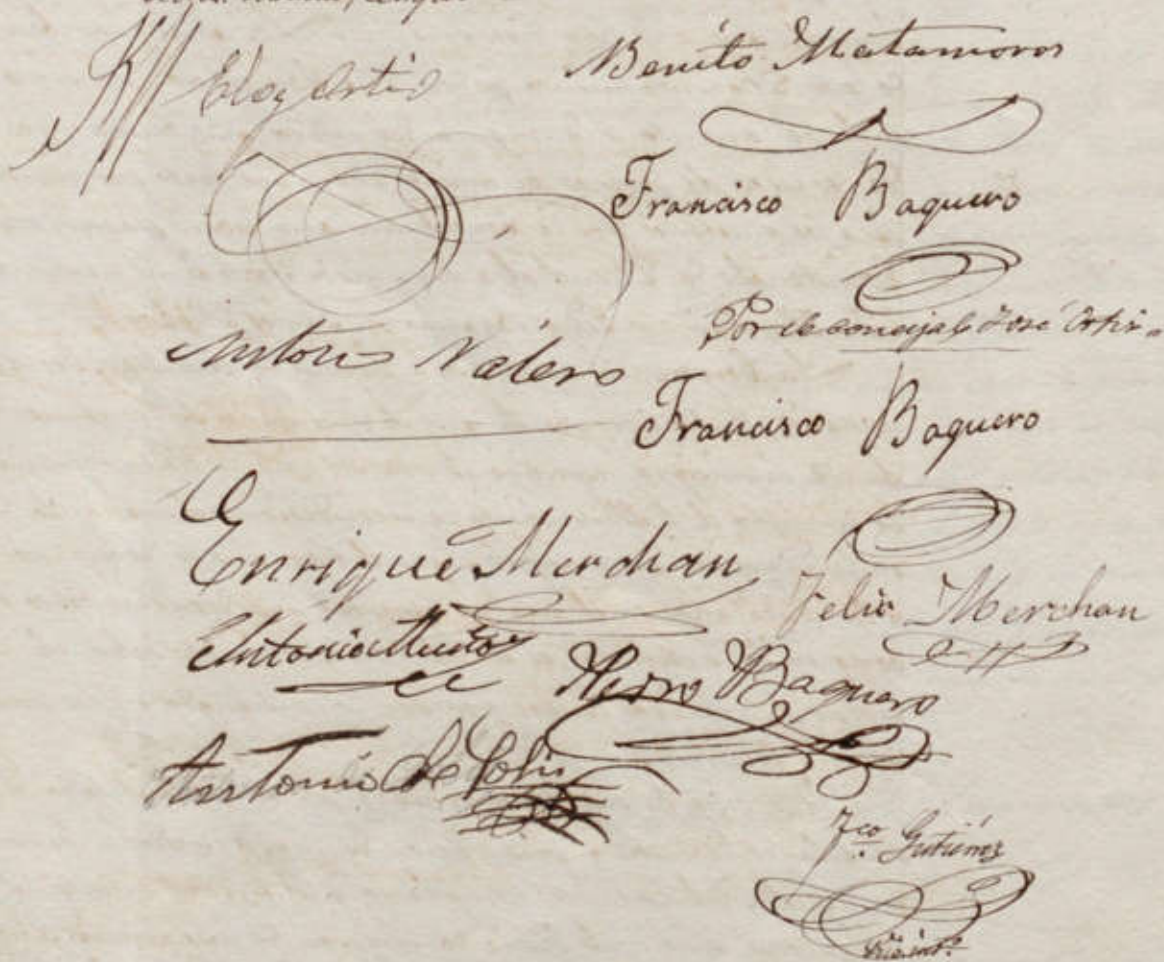 Eloy Ortiz
Benito Matamoros
Francisco Baquero
Por el concejal José Ortiz =
Valero
Francisco Baquero
Enrique Merchan
Felix Merchan
Antonio
Baquero
Antonio de Solis
Fco. Gutiérrez